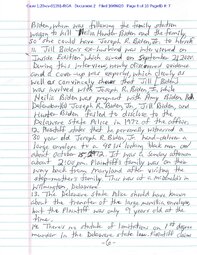 Case 1:23-cv-01151-RGA Document 2 Filed Page 6 of 10 PageID #: 7
Biden, whom was following the family station
wagon to kill Neilia Hunter Biden and the family,
so she could have Joseph R. Biden, Jr. to herself.
11. Jill Biden's ex-husband was interviewed on
Inside Edition which aired on September 21, 2020.
During this interview, newly discovered evidence
and a cover-up was exposed, which clearly as
well as convincingly shows that Jill Biden
was involved with Joseph R. Biden, Jr. while
Neilia Biden was pregnant with Amy Biden.
Defendants Joseph R. Biden, Jr., Jill Biden, and
Hunter Biden failed to disclose to the
Delaware State Police in 1972 of the affair.
12. Plaintiff states that he personally witnessed a
30 year old Joseph R. Biden, Jr. hand-deliver a
large envelope to a 45ish looking black man on
about October 15, 1972. It was a Sunday afternoon
about 2:00 pm. Plaintiff's family was on their
way back from Maryland after visiting the
step-mother's family. This was at a McDonald's in
Wilmington, Delaware.
13. The Delaware State Police should have known
about the transfer of the large manila envelope,
but the Plaintiff was only 9 years old at the
time.
14. There's no statute of limitations on 1st degree
murder in the Delaware state law. Plaintiff claims
-6-